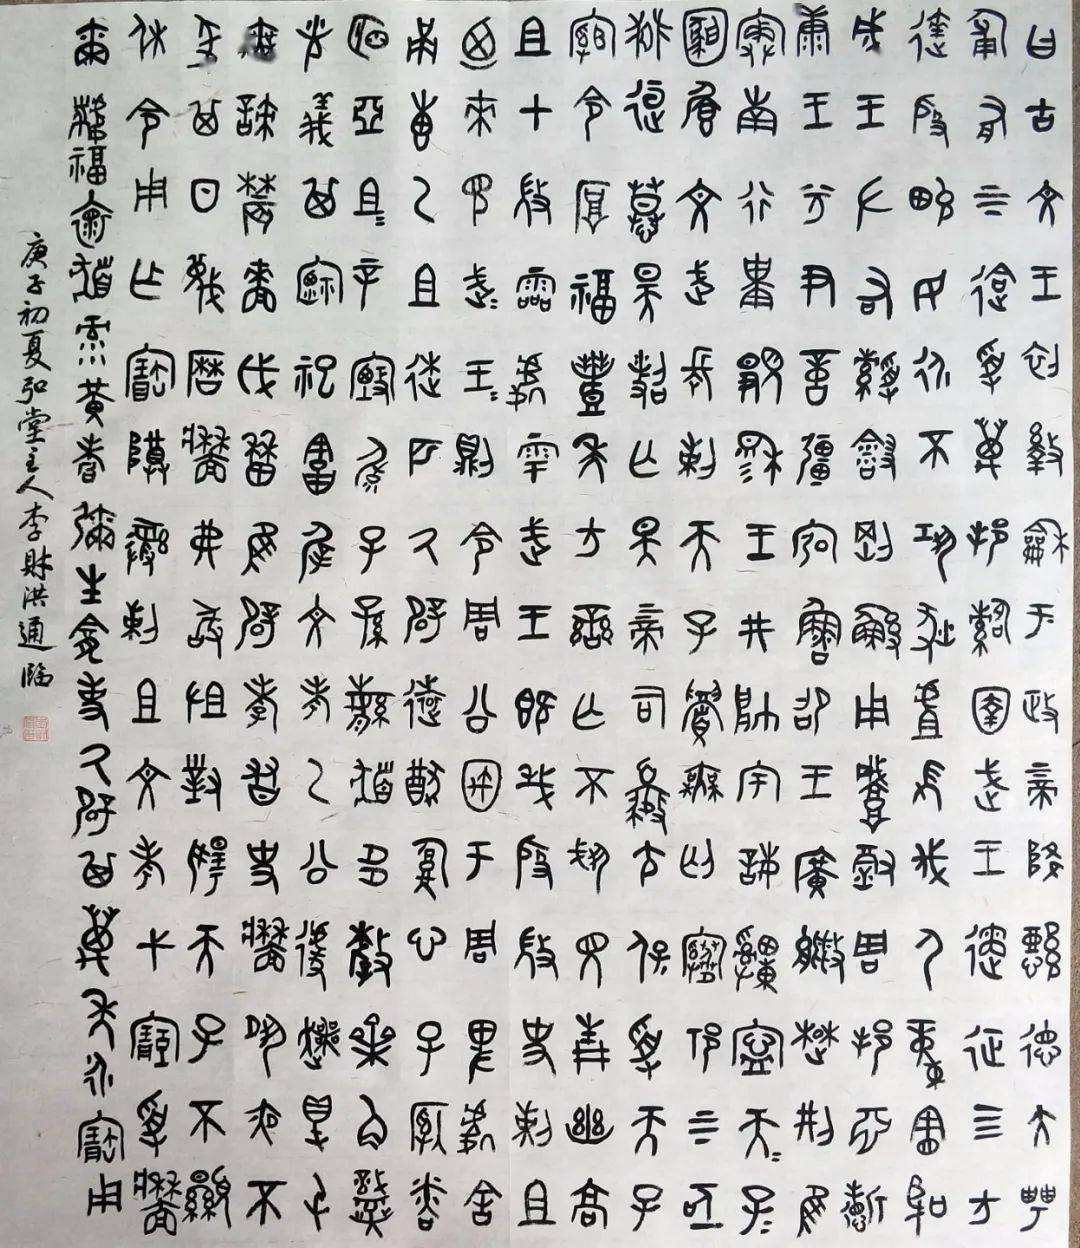 曰古文王初盭龢于政上帝降懿德大甹
匍有上下迨受萬邦圉武王遹征四方
達殷畯民永不巩狄虘長伐尸童
成王左右綬會剛鯀用肇徹周邦淵哲
康王兮尹億疆宏魯昭王廣笞楚荊唯
寏南行祗覭穆王井帥宇誨申寧天子
文武長剌天子眉無匄祁上下亟
熙桓慕昊照亡斁上帝司夒尢保受天子
綰令厚福豐年方蠻亡不見青幽高
且在微靈處雩武王既殷微史剌且
迺來見武王則令周公舍宇于周卑處
甬惠乙且逨匹厥辟遠猷腹心子納粦
明亞且辛甄毓子孫繁祓多孷齊角熾
光義其禋祀胡遲文考乙公遽爽得屯
無諫農穡越曆唯辟孝友史牆夙夜不
墜其日蔑曆牆弗敢沮對揚天子不顯
休令用乍寶尊彝剌且文考弋貯受牆
爾福懷祓祿黃耇彌生龕事厥辟其萬年永寶用
庚子初夏弘堂主人李財洪通臨